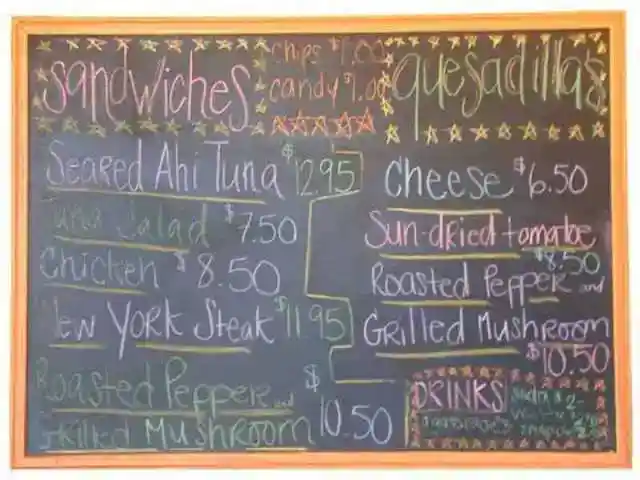 Sandwiches
chips $1.00
candy $1.00
quesadillas
Seared Ahi Tuna $12.95
Tuna Salad $7.50
Chicken $8.50
New York Steak $11.95
Roasted Pepper and
Grilled Mushroom $10.50
Cheese $6.50
Sun-dried tomatoe
$8.50
Roasted Pepper and
Grilled Mushroom
$10.50
DRINKS